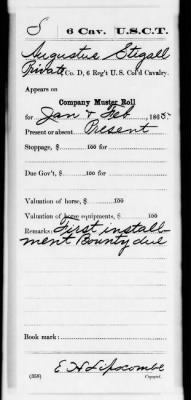 S 6 Cav. U.S.C.T.
Augustus Stegall
Private, Co. D, 6 Reg't U. S. Col'd Cavalry.
Appears on
Company Muster Roll
for Jan & Feb, 1865.
Present or absent Present
Stoppage, $ 100 for
Due Gov't, $ 100 for
Valuation of horse, $ 100
Valuation of horse equipments, $ 100
Remarks: First install-
ment Bounty due
Book mark:
E H Lipscombe
(358) Copyist.